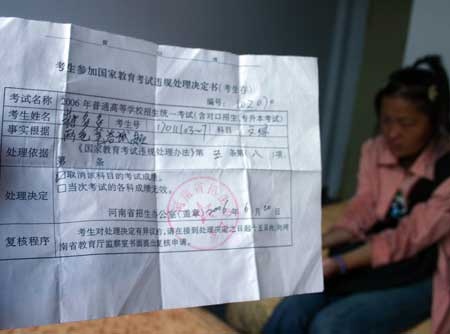 考生参加国家教育考试违规处理决定书(考生存)
编号:
考试名称 2006 年普通高等学校招生统一考试(含对口招生、专升本考试)
考生姓名 考生号 科目
事实根据
处理依据 《国家教育考试违规处理办法》第 条第(八)项
第 条
处理决定 □取消该科目的考试成绩。
□当次考试的各科成绩无效。
河南省招生办公室(盖章) 2006 年 6 月 20 日
复核程序 考生对处理决定有异议的,请在接到处理决定之日起十五日内,向河
南省教育厅监察室书面提出复核申请。